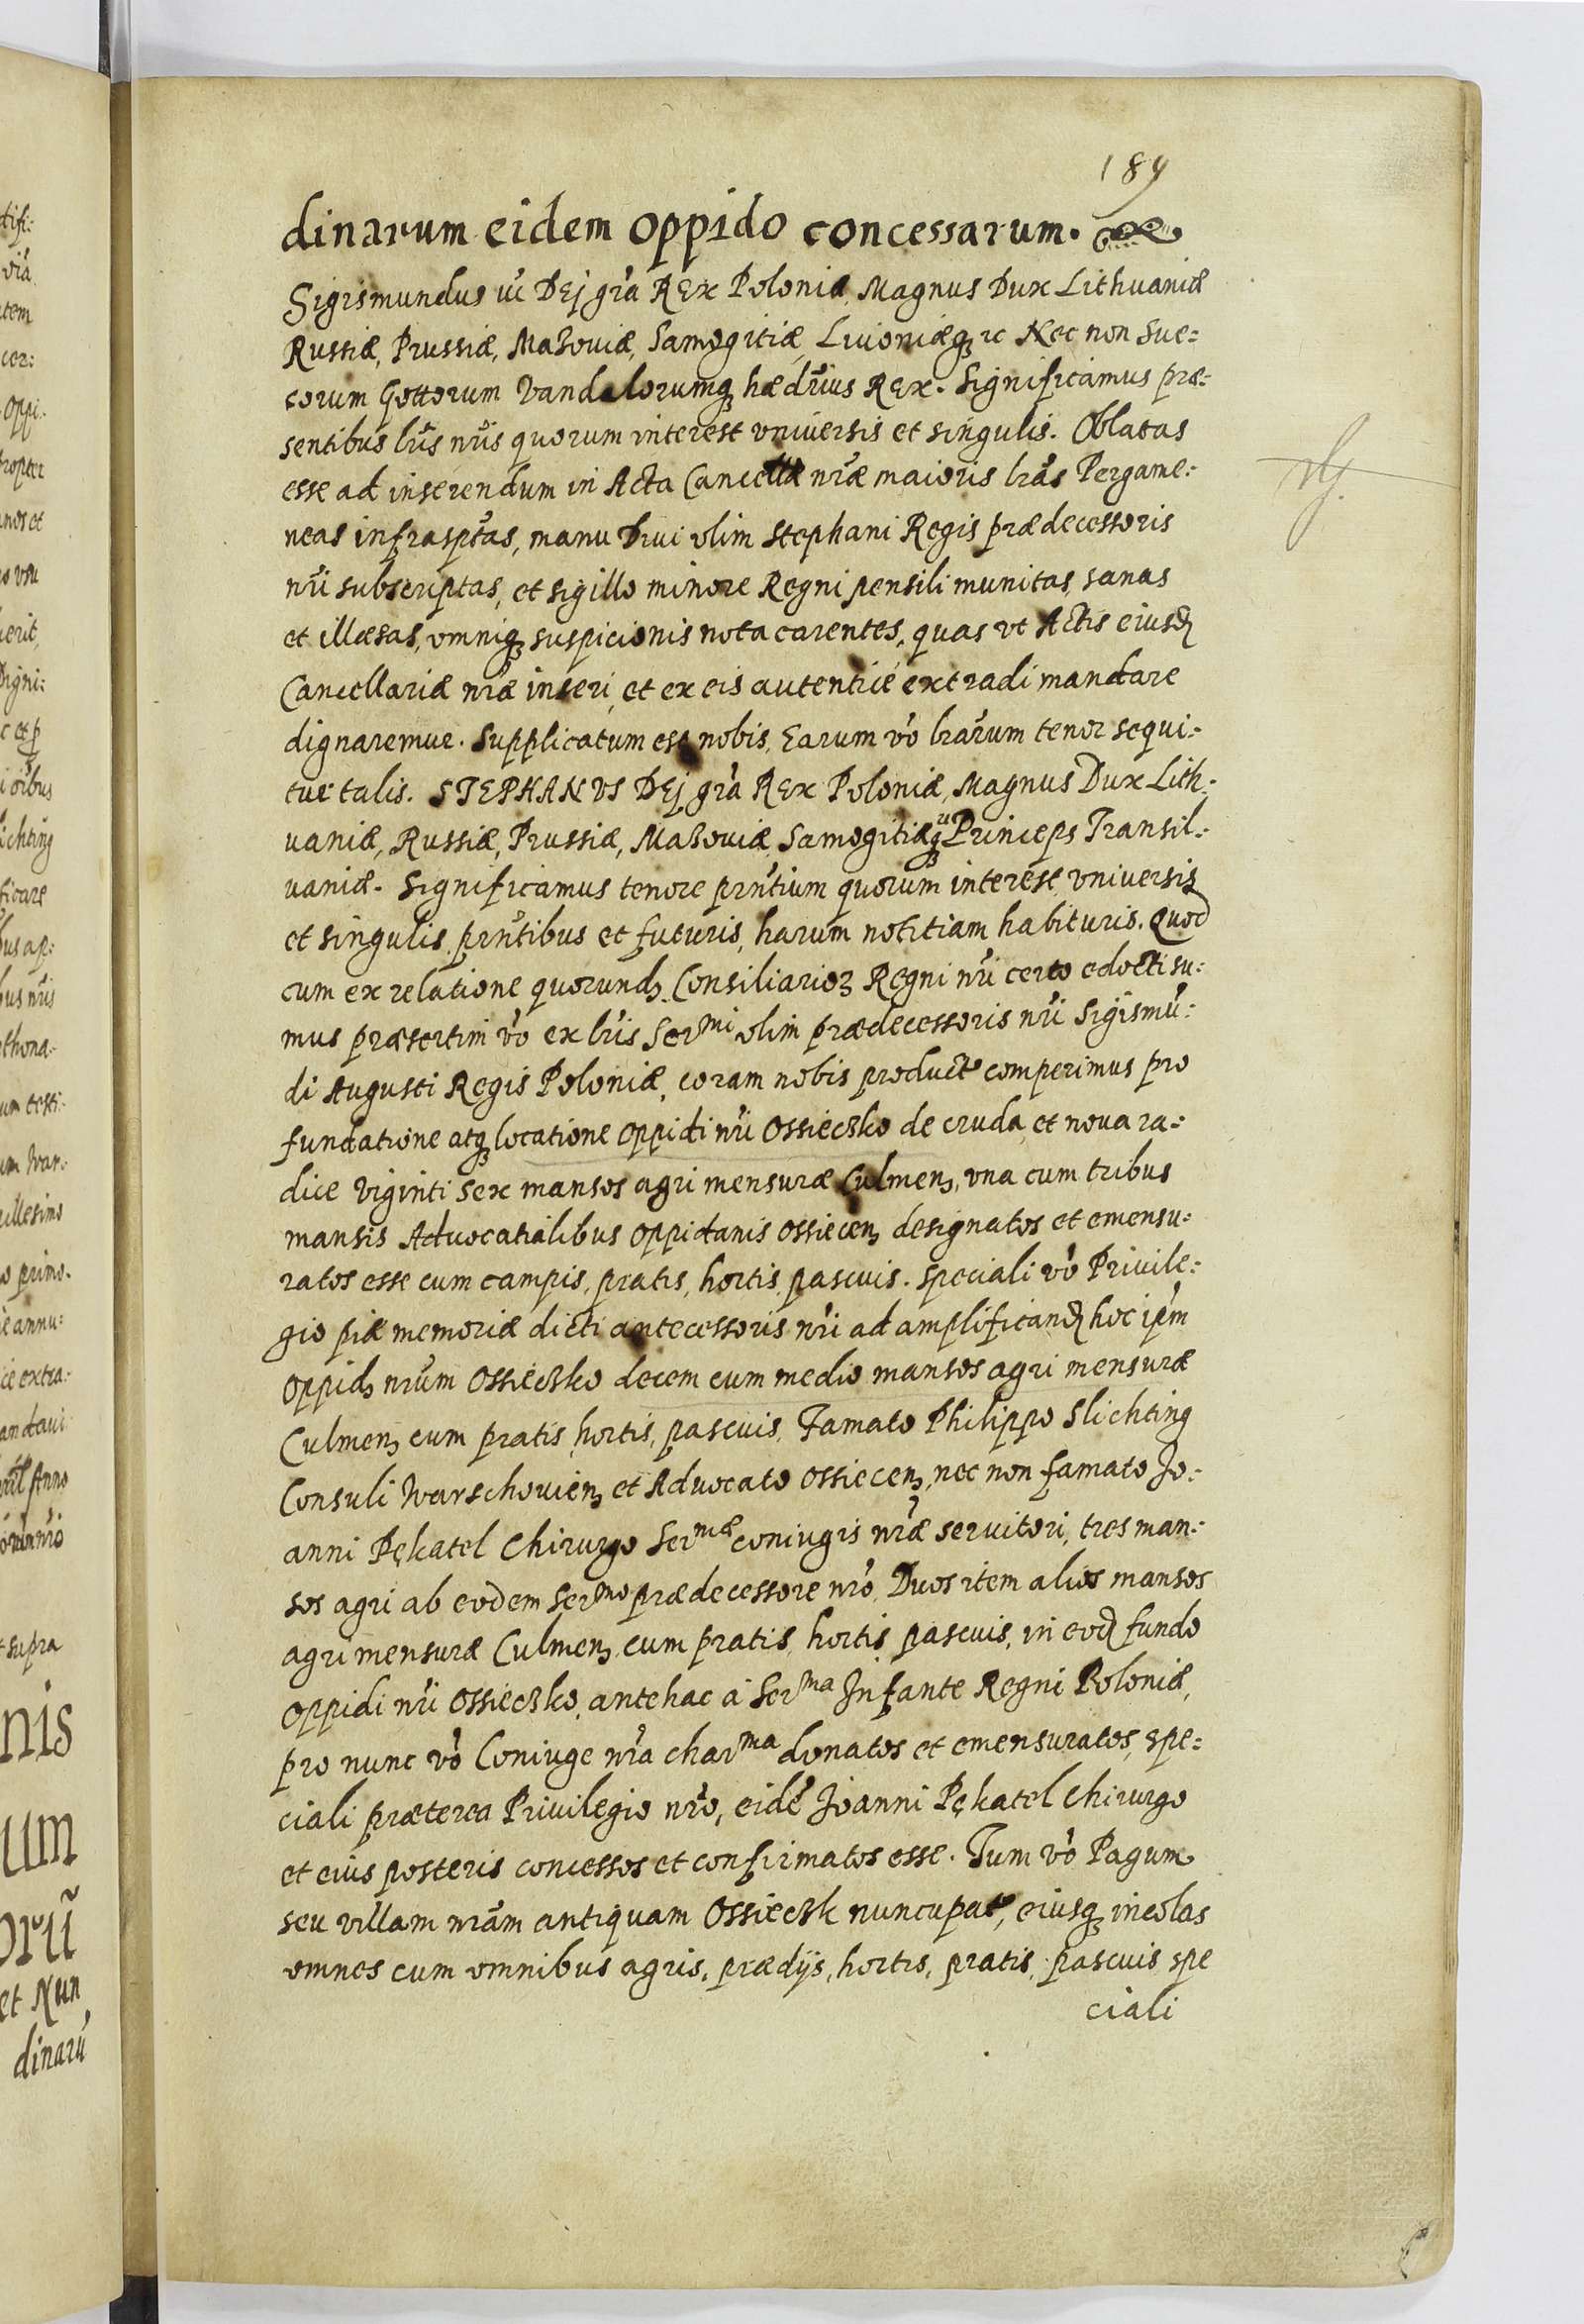 189
dinarum eidem oppido concessarum.
Sigismundus iii Dej grã Rex Poloniæ, Magnus Dux Lithuaniæ
Russiæ, Prussiæ, Mazouiæ, Samogitiæ Liuoniæq₃ ꝛc Nec non Sue:
corum Gottorum Vandalorumq₃ hædrius Rex. Significamus præ:
sentibus lris nris quorum interest vniuersis et singulis. Oblatas
esse ad inserendum in Acta Cancellæ nræ maioris lras Pergame:
neas infrasptas, manu Diui olim Stephani Regis prædecessoris
nri subscriptas, et sigillo minore Regni pensili munitas, sanas
et illæsas, omniq₃ suspicionis nota carentes, quas vt Actis eiusd
Cancellariæ nræ inseri, et ex eis autenticè extradi mandare
dignaremur. Supplicatum est nobis, Earum vo lrarum tenor sequi:
tur talis. STEPHANVS Dej grã Rex Poloniæ, Magnus Dux Lith:
uaniæ, Russiæ, Prussiæ, Mazouiæ, Samogitiæq₃ Princeps Transil:
uaniæ. Significamus tenore prñtium quorum interest vniuersis
et singulis prñtibus et futuris, harum notitiam habituris. Quod
cum ex relatione quorund₃ Consiliario₃ Regni nri certo edocti su:
mus præsertim vo ex lris Sermi olim prædecessoris nri Sigismũ:
di Augusti Regis Poloniæ, coram nobis product comperimus pro
fundatione atq₃ locatione oppidi nri Ossieczko de cruda et noua ra:
dice viginti sex mansos agri mensuræ Culmen₃, vna cum tribus
mansis Aduocatialibus oppidanis Ossiecen₃ designatos et emensu:
ratos esse cum campis, pratis, hortis, pascuis. Speciali vo Priuile:
gio piæ memoriæ dicti antecessoris nri ad amplificand hoc ipm
oppid₃ nrum Ossieczko decem cum medio mansos agri mensuræ
Culmen₃ cum pratis, hortis, pascuis, Famato Philippo Slichting
Consuli Warschouien₃ et Aduocato Ossiecen₃, nec non famato Jo:
anni Pękatel Chirurgo Sermæ coniugis nræ seruitori, tres man:
sos agri ab eodem Sermo prædecessore nro, Duos item alios mansos
agri mensuræ Culmen₃ cum pratis, hortis, pascuis, in eod fundo
oppidi nri Ossieczko, antehac à Serma Infante Regni Poloniæ,
pro nunc vo Coniuge nra charma donatos et emensuratos, spe:
ciali præterea Priuilegio nro, eidẽ Joanni Pękatel Chirurgo
et eius posteris concessos et confirmatos esse. Tum vo Pagum
seu villam nram antiquam Ossieczk nuncupat, eiusq₃ incolas
omnes cum omnibus agris, prædijs, hortis, pratis, pascuis spe
ciali